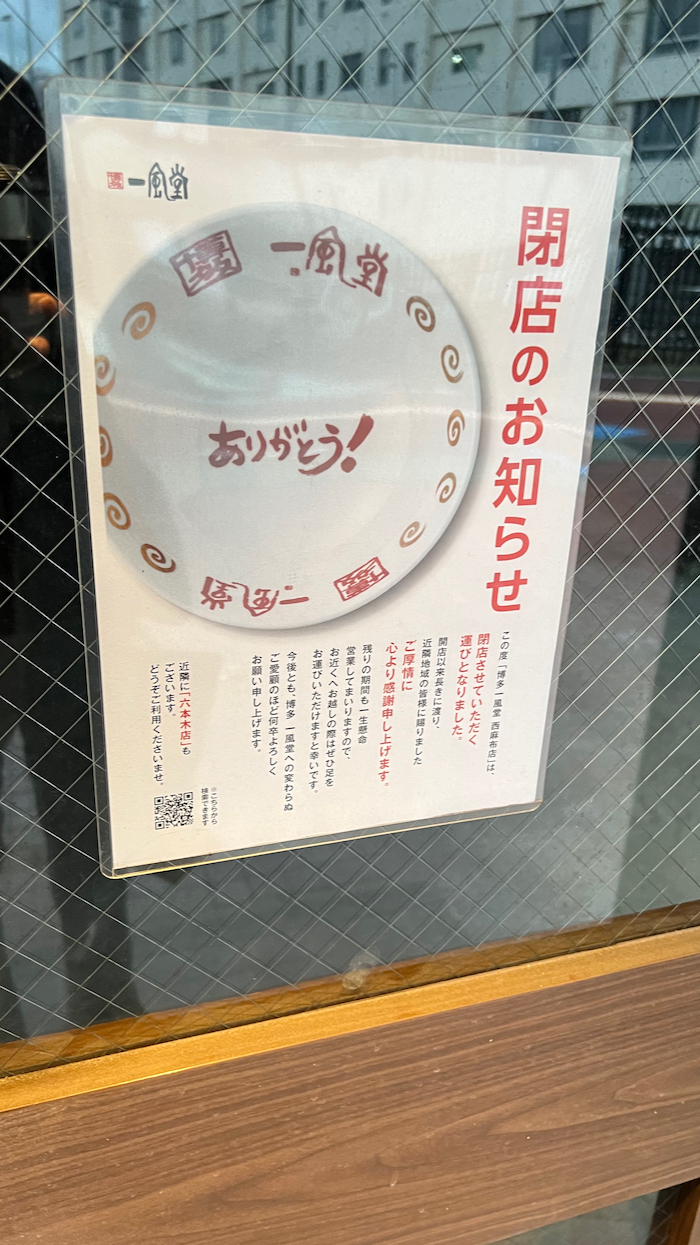 博多 一風堂
閉店のお知らせ
博多 一風堂
ありがとう!
博多 一風堂
この度「博多一風堂 西麻布店」は、
閉店させていただく
運びとなりました。
開店以来長きに渡り、
近隣地域の皆様に賜りました
ご厚情に
心より感謝申し上げます。
残りの期間も一生懸命
営業してまいりますので、
お近くへお越しの際はぜひ足を
お運びいただけますと幸いです。
今後とも、博多一風堂への変わらぬ
ご愛顧のほど何卒よろしく
お願い申し上げます。
近隣に「六本木店」も
ございます。
どうぞご利用くださいませ。
※こちらから
検索できます